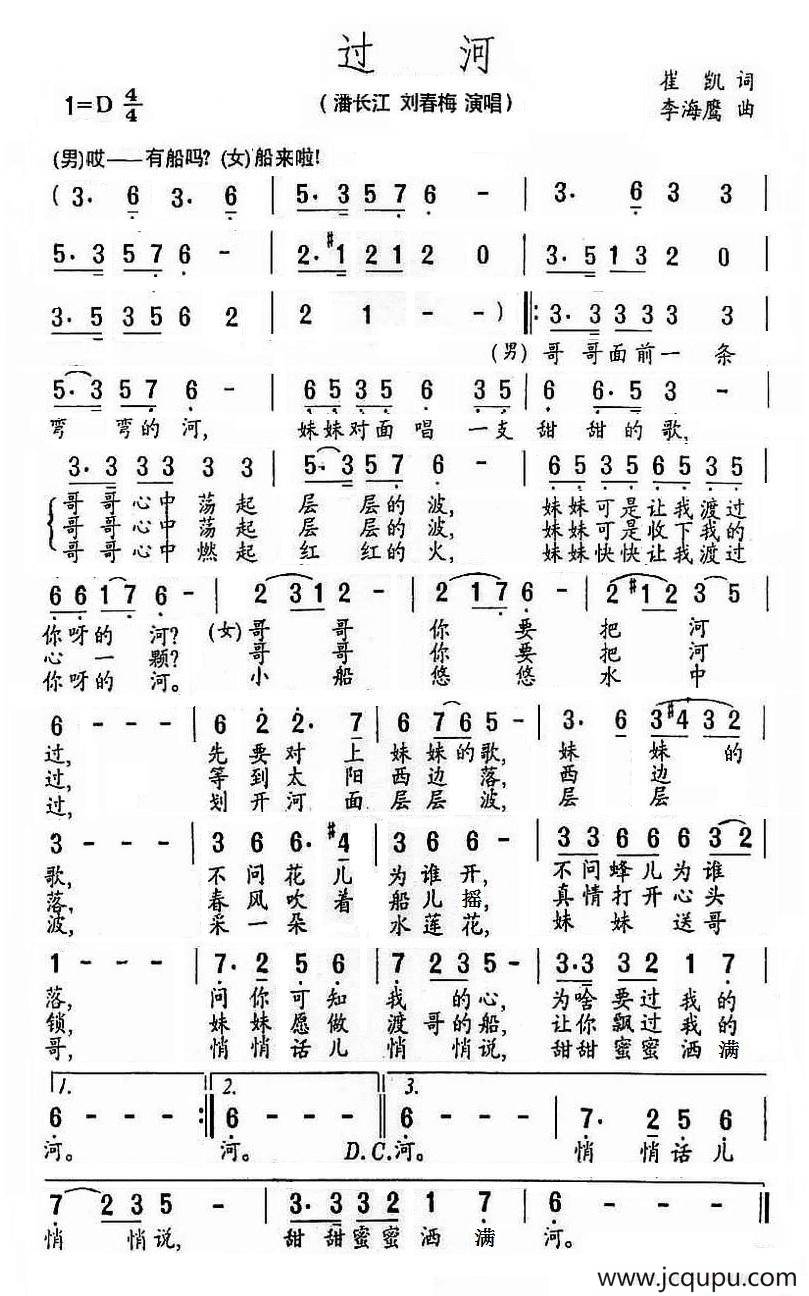 过 河
1=D 4/4
(潘长江 刘春梅 演唱)
崔 凯 词
李海鹰 曲
(男)哎——有船吗? (女)船来啦!
( 3· 6 3· 6 | 5·3 5 7 6 - | 3· 6 3 3 |
5·3 5 7 6 - | 2·#1 2 1 2 0 | 3·5 1 3 2 0 |
3·5 3 5 6 2 | 2 1 - - ) ‖: 3·3 3 3 3 3 |
(男)哥 哥面前一 条
5·3 5 7 6 - | 6 5 3 5 6 3 5 | 6 6·5 3 - |
弯 弯的 河, 妹妹对面 唱 一支 甜 甜的歌,
3·3 3 3 3 3 | 5·3 5 7 6 - | 6 5 3 5 6 5 3 5 |
哥哥心中荡起 层 层的波, 妹妹可是让我渡过
哥哥心中荡起 层 层的波, 妹妹可是收下我的
哥哥心中燃起 红 红的火, 妹妹快快让我渡过
6 6 1 7 6 - | 2 3 1 2 - | 2 1 7 6 - | 2 #1 2 3 5 |
你呀的 河? (女)哥 哥 你 要 把 河
心 一 颗? 哥 哥 你 要 把 河
你呀的 河。 小 船 悠 悠 水 中
6 - - - | 6 2 2· 7 | 6 7 6 5 - | 3· 6 3 #4 3 2 |
过, 先 要 对 上 妹 妹的歌, 妹 妹 的
过, 等 到 太 阳 西 边 落, 西 边
过, 划 开 河 面 层 层 波, 层 层
3 - - - | 3 6 6· #4 | 3 6 6 - | 3 3 6 6 6 3 2 |
歌, 不 问 花 儿 为 谁 开, 不问蜂儿为 谁
落, 春 风 吹 着 船 儿 摇, 真情打开心 头
波, 采 一 朵 水 莲 花, 妹 妹 送 哥
1 - - - | 7· 2 5 6 | 7 2 3 5 - | 3·3 3 2 1 7 |
落, 问 你 可 知 我 的 心, 为啥要过我的
锁, 妹 妹 愿 做 渡 哥的船, 让你飘过我的
哥, 悄 悄 话 儿 悄 悄 说, 甜甜蜜蜜洒满
1. 2. 3.
6 - - - :‖ 6 - - - ‖ 6 - - - | 7· 2 5 6 |
河。 河。 D.C.河。 悄 悄 话 儿
7 2 3 5 - | 3·3 3 2 1 7 | 6 - - - ‖
悄 悄 说, 甜甜蜜蜜 洒 满 河。
www.jcqupu.com